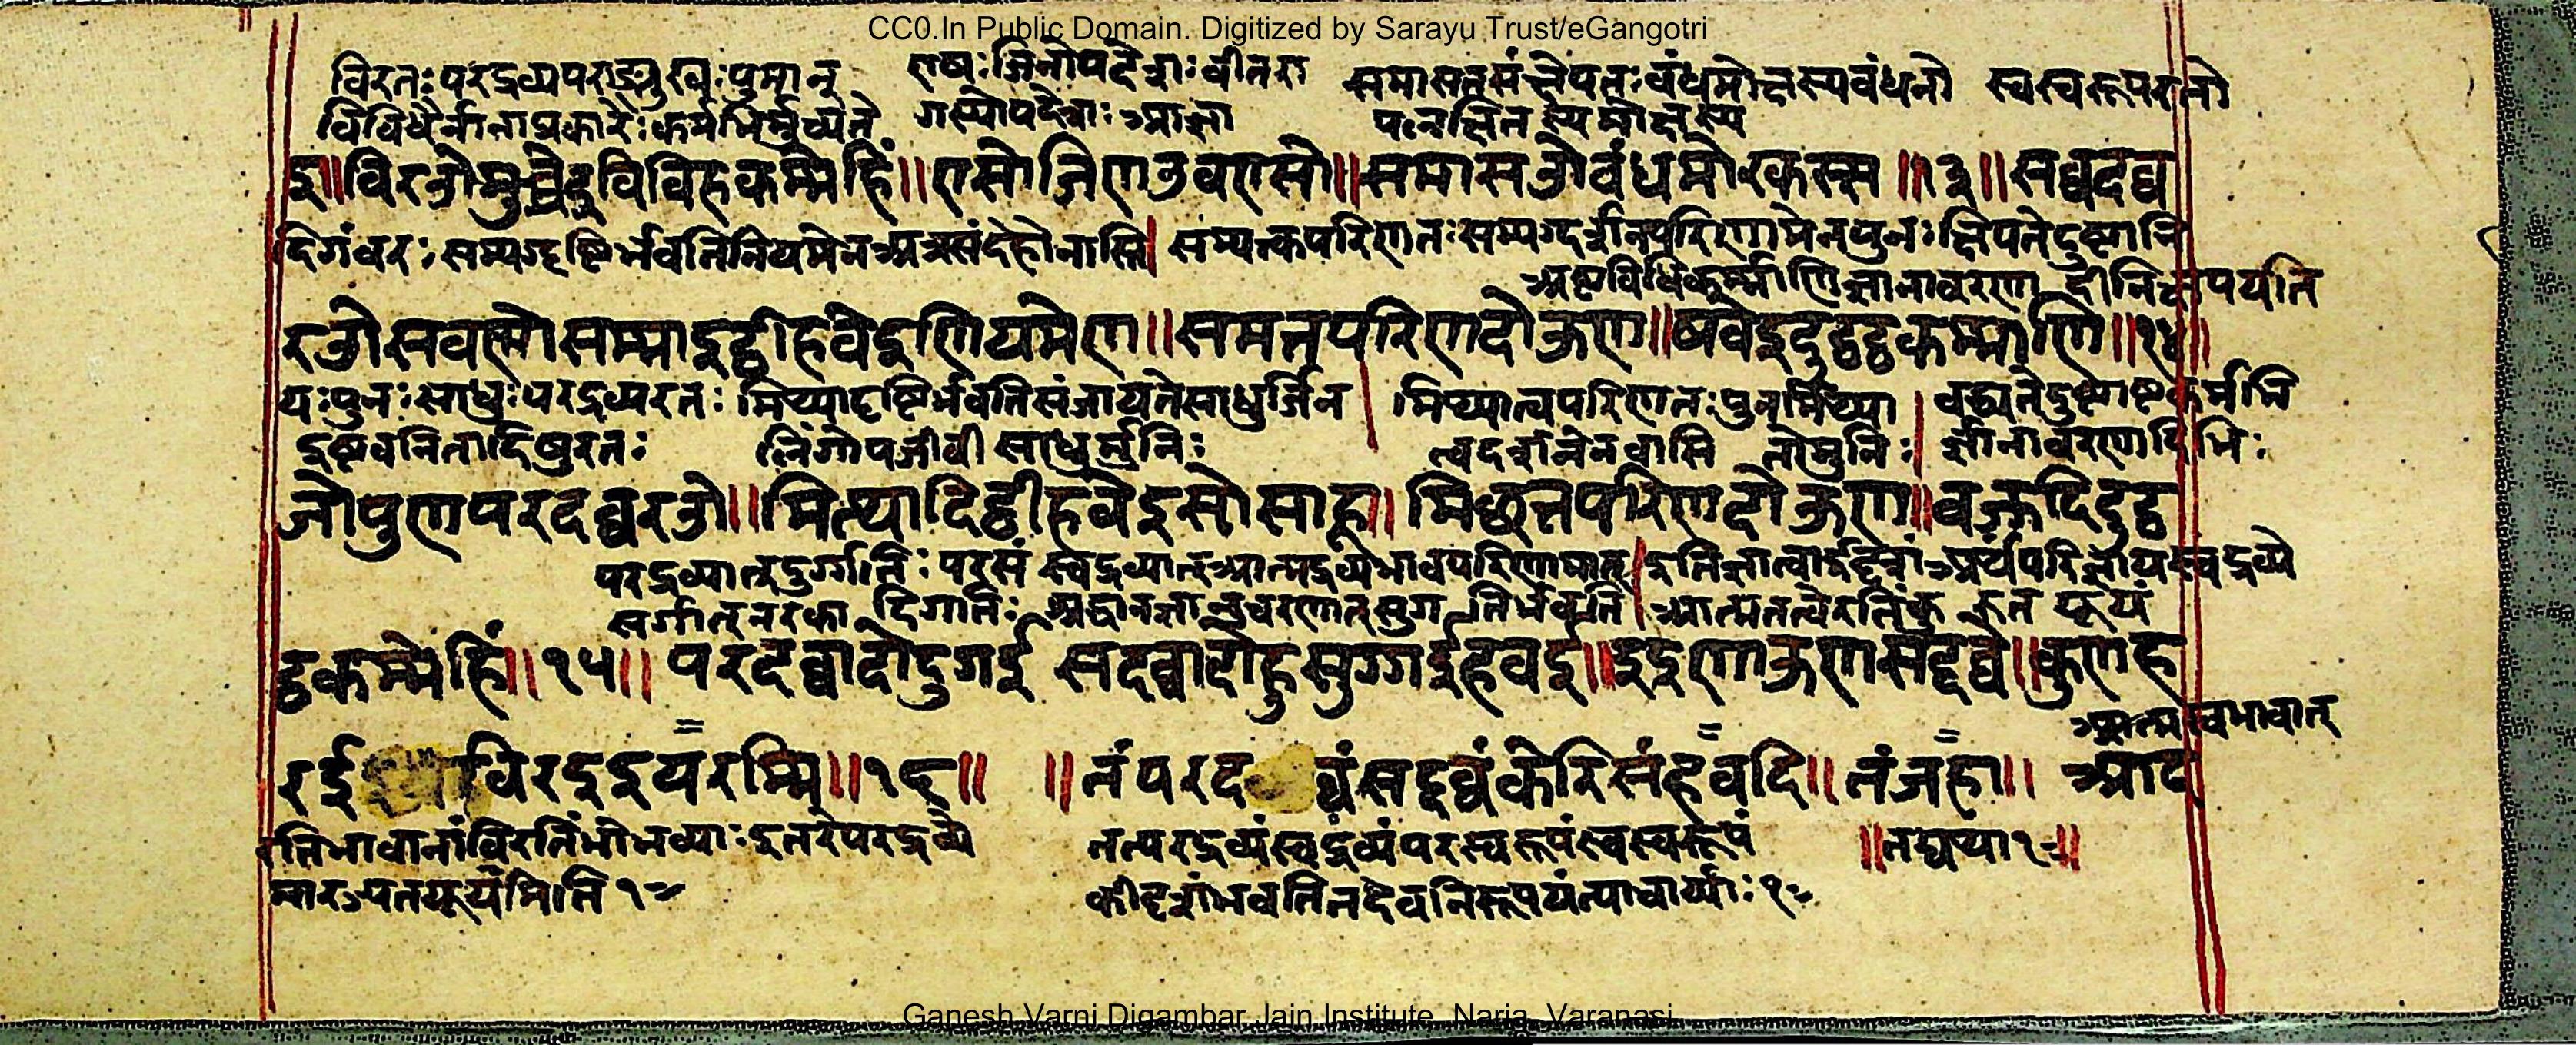 CC0.In Public Domain. Digitized by Sarayu Trust/eGangotri
विरतः परद्रव्यपराङ्मुखः पुमान् एषः जिनोपदेशः वीतरा समासतसंक्षेपतः वंधमोक्षस्य वंधनो स्वस्वरूपरतो
विविधैर्नानाप्रकारैः कर्मभिर्मुच्यते गस्योपदेशः आज्ञा स्य मोक्षस्य
इ॥ विरओ मुच्चेइ विविहकम्मेहिं॥ एसो जिणउवएसो॥ समासओ वंधमोरकस्स॥१३॥ सद्दव्व
दिगंवरः सम्यग्दृष्टिर्भवति नियमेन अत्र संदेहो नास्ति। सम्यत्कपरिणतः सम्यग्दर्शनपरिणामेन पुनः क्षिपते दुष्टानि
अष्टविधिकर्म्माणि ज्ञानावरणा दीनि क्षपयति
रओ सवणो सम्माइट्ठी हवेइ णियमेण॥ समत्तपरिणदो ऊण॥ षवेइ दुट्ठट्ठकम्माणि॥१४॥
यः पुनः साधुः परद्रव्यरतः मिथ्यादृष्टिर्भवति संजायते साधुर्जिन। मिथ्यात्वपरिणतः पुनर्मिथ्या। वद्ध्यते दुष्टाष्टकर्मभि
इष्टवनितादिषु रतः लिंगोपजीवी साधुर्मुनिः त्वदर्शनेन वासि तो मुनिः। ज्ञानावरणादिभिः
जो पुण परदव्वरओ॥ मित्थादिट्ठी हवेइ सो साहू॥ मिछत्तपरिणदो ऊण॥ वज्झदि दुट्ठ
परद्रव्यात् दुर्ग्गतिः परसं स्वद्रव्यात् आत्मद्रव्यभावपरिणामात्। इति ज्ञात्वा ईदृशं अर्थं परिज्ञाय स्वद्रव्ये
सर्गात् नरका दिगतिः सुगतिर्भवति। आत्मतत्वे रतिं कु रुत यूयं
ट्ठकम्मेहिं॥१५॥ परदव्वादो दुगई सदव्वादो हु सुग्गई हवइ॥ इइ णाऊण सद्दव्वे॥ कुणह
आत्मस्वभावात्
रई विरइ इयरम्मि॥१६॥ ॥तं परद व्वं सद्दव्वं केरिसं हवदि॥ तं जहा॥ आद
तिभावानां विरतिं भो भव्याः इतरे परद्रव्ये तत्परद्रव्यं स्वद्रव्यं परस्वरूपं स्वस्वरूपं ॥तद्यथा १॥
यूयमिति १ कीदृशं भवति तदेव निरूपयंत्याचार्य्याः १
Ganesh Varni Digambar Jain Institute, Naria, Varanasi